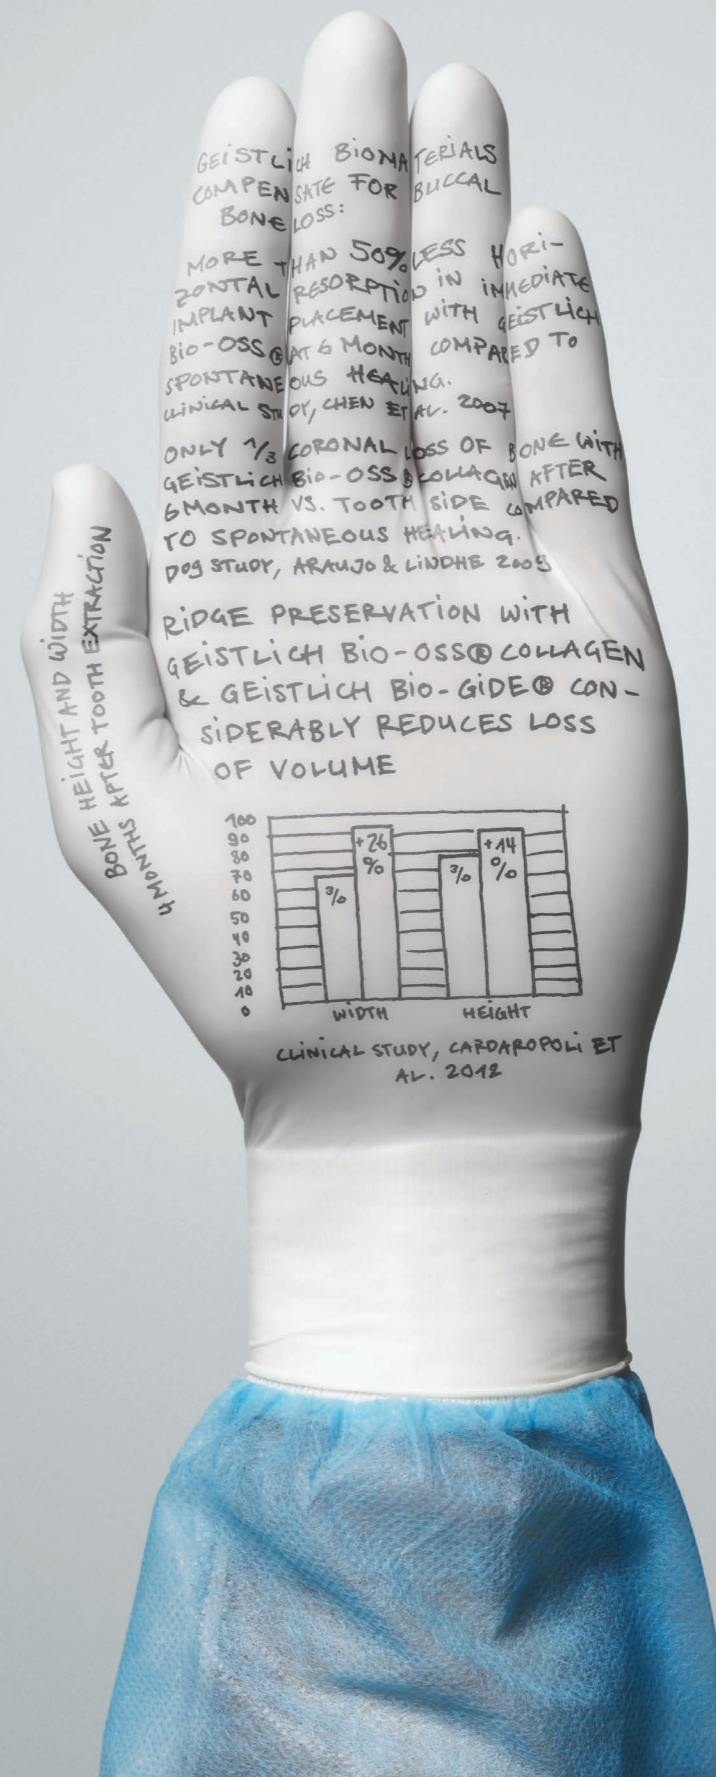 GEISTLICH BIOMATERIALS
COMPENSATE FOR BUCCAL
BONE LOSS:
MORE THAN 50% LESS HORI-
ZONTAL RESORPTION IN IMMEDIATE
IMPLANT PLACEMENT WITH GEISTLICH
BIO-OSS® AT 6 MONTH COMPARED TO
SPONTANEOUS HEALING.
CLINICAL STUDY, CHEN ET AL. 2007
ONLY 1/3 CORONAL LOSS OF BONE WITH
GEISTLICH BIO-OSS® COLLAGEN AFTER
6 MONTH VS. TOOTH SIDE COMPARED
TO SPONTANEOUS HEALING.
DOG STUDY, ARAUJO & LINDHE 2009
RIDGE PRESERVATION WITH
GEISTLICH BIO-OSS® COLLAGEN
& GEISTLICH BIO-GIDE® CON-
SIDERABLY REDUCES LOSS
OF VOLUME
BONE HEIGHT AND WIDTH
4 MONTHS AFTER TOOTH EXTRACTION
100
90
80
70
60
50
40
30
20
10
0
%
+26
%
%
+14
%
WIDTH
HEIGHT
CLINICAL STUDY, CARDAROPOLI ET
AL. 2012